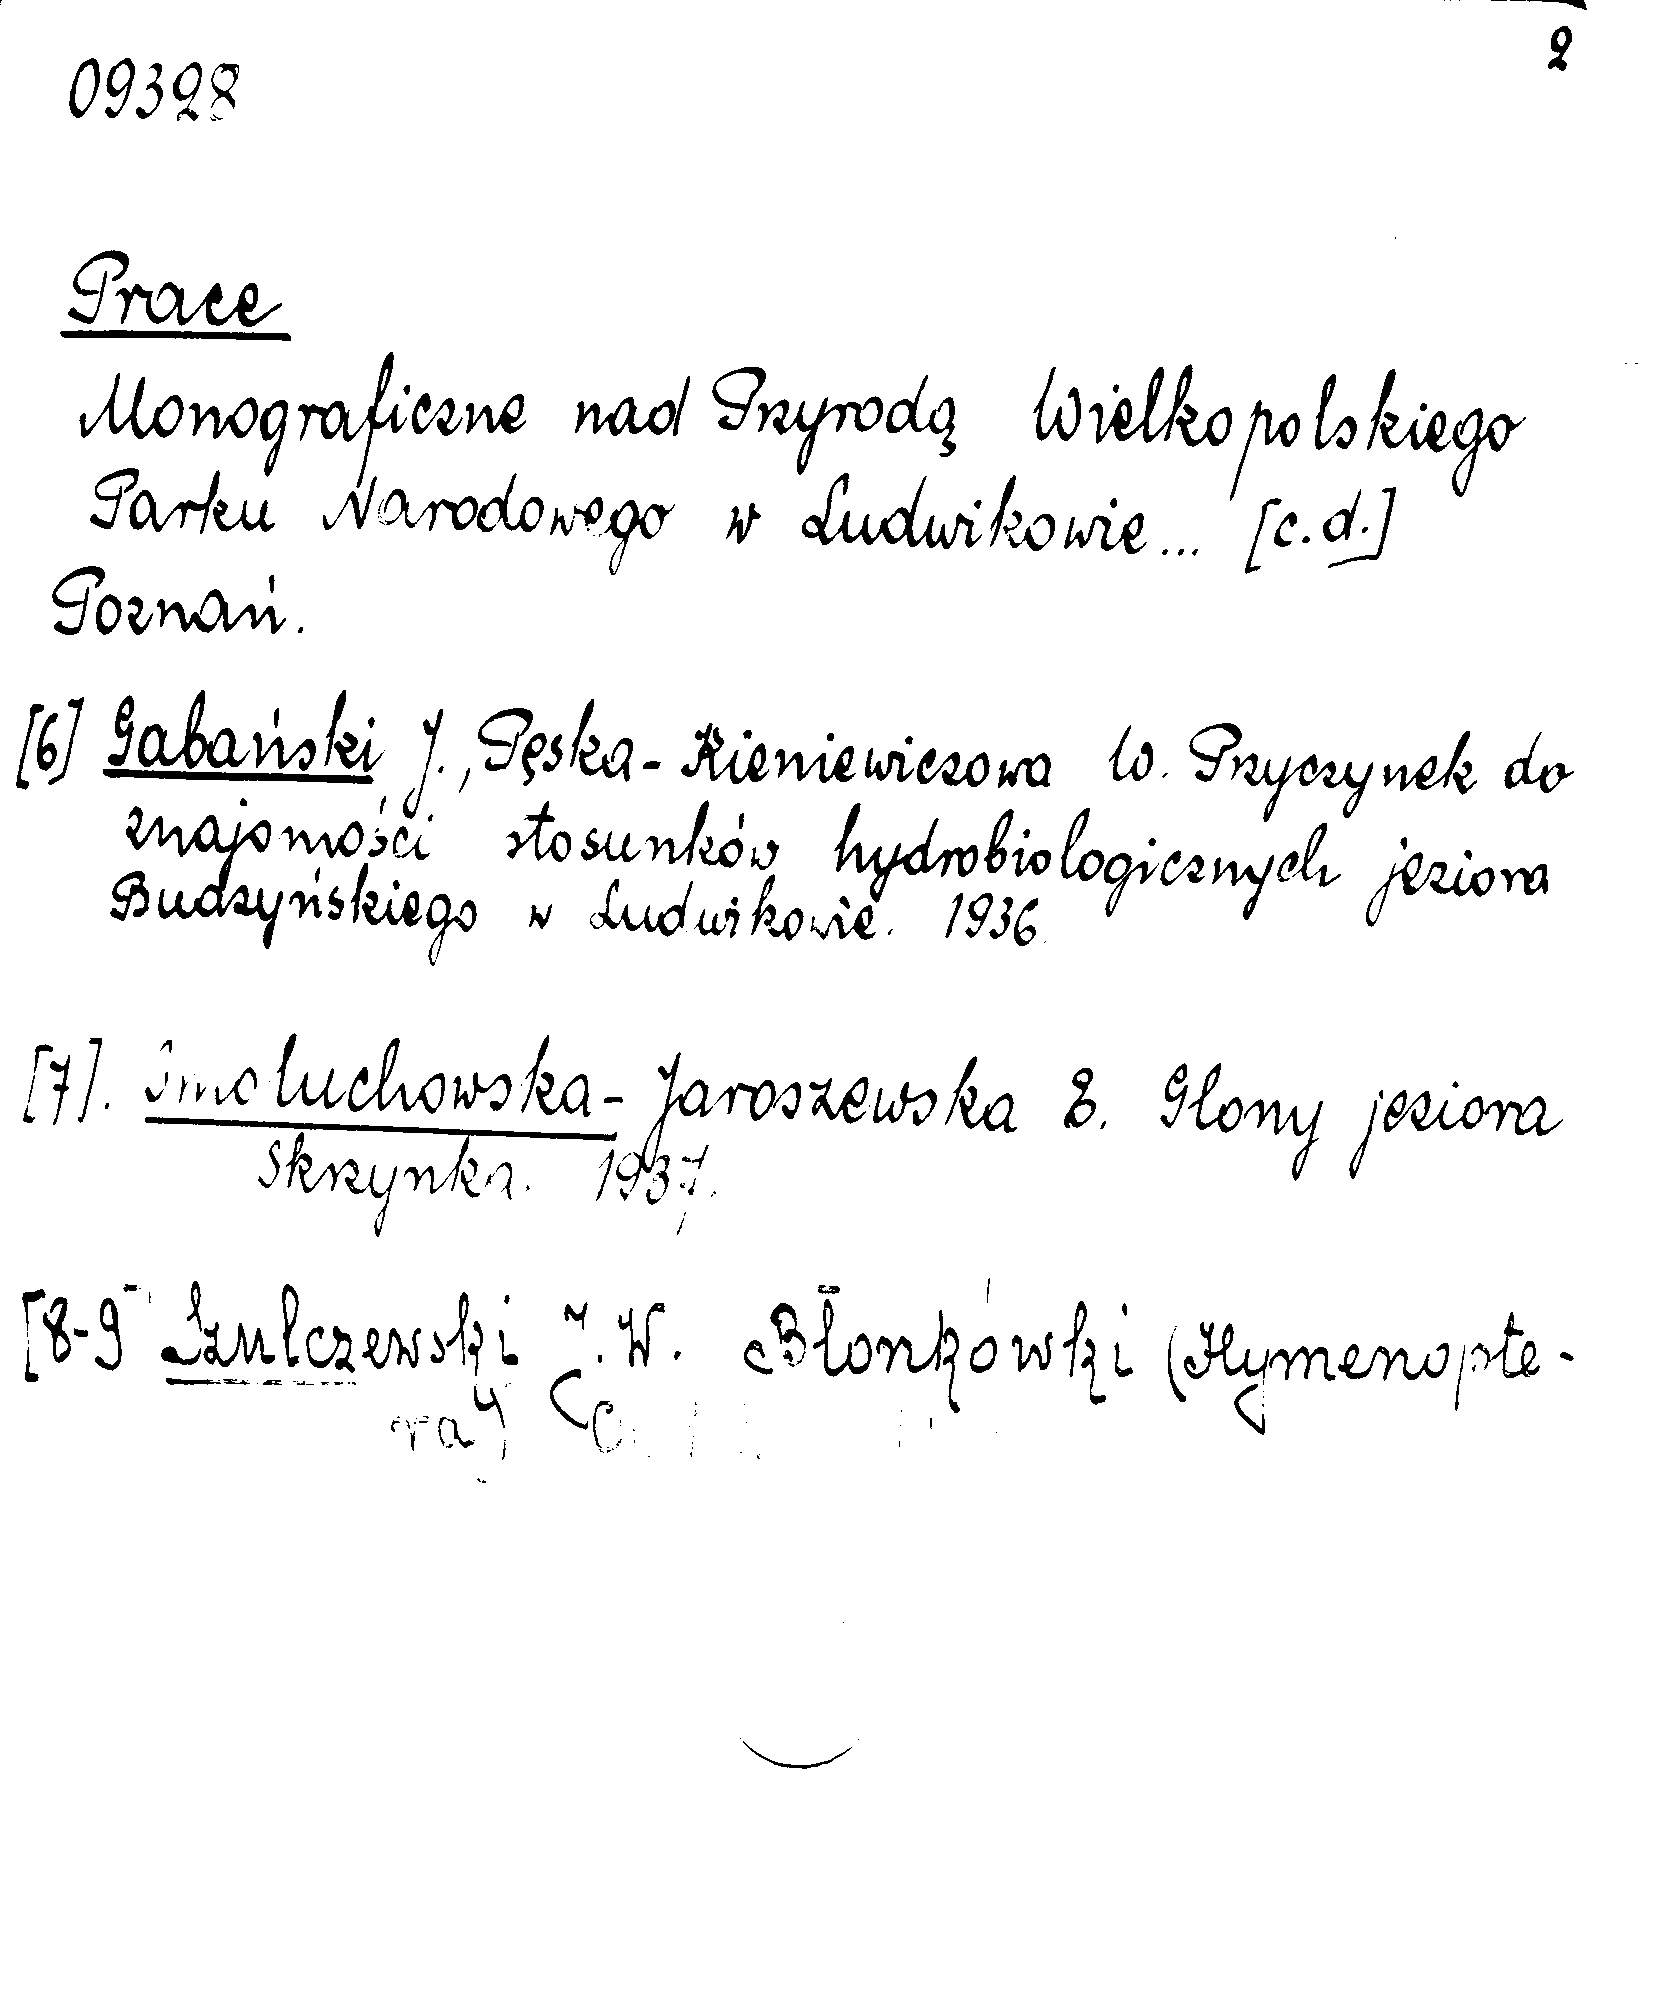 2
09328
Prace
Monograficzne nad Przyrodą Wielkopolskiego
Parku Narodowego w Ludwikowie... [c.d.]
Poznań.
[6] Gabański J., Pęska-Kieniewiczowa W. Przyczynek do
znajomości stosunków hydrobiologicznych jeziora
Budzyńskiego w Ludwikowie. 1936
[7]. Smoluchowska-Jaroszewska E. Glony jeziora
Skrzynka. 1937.
[8-9 Szulczewski J.W. Błonkówki (Hymenopte-
ra)